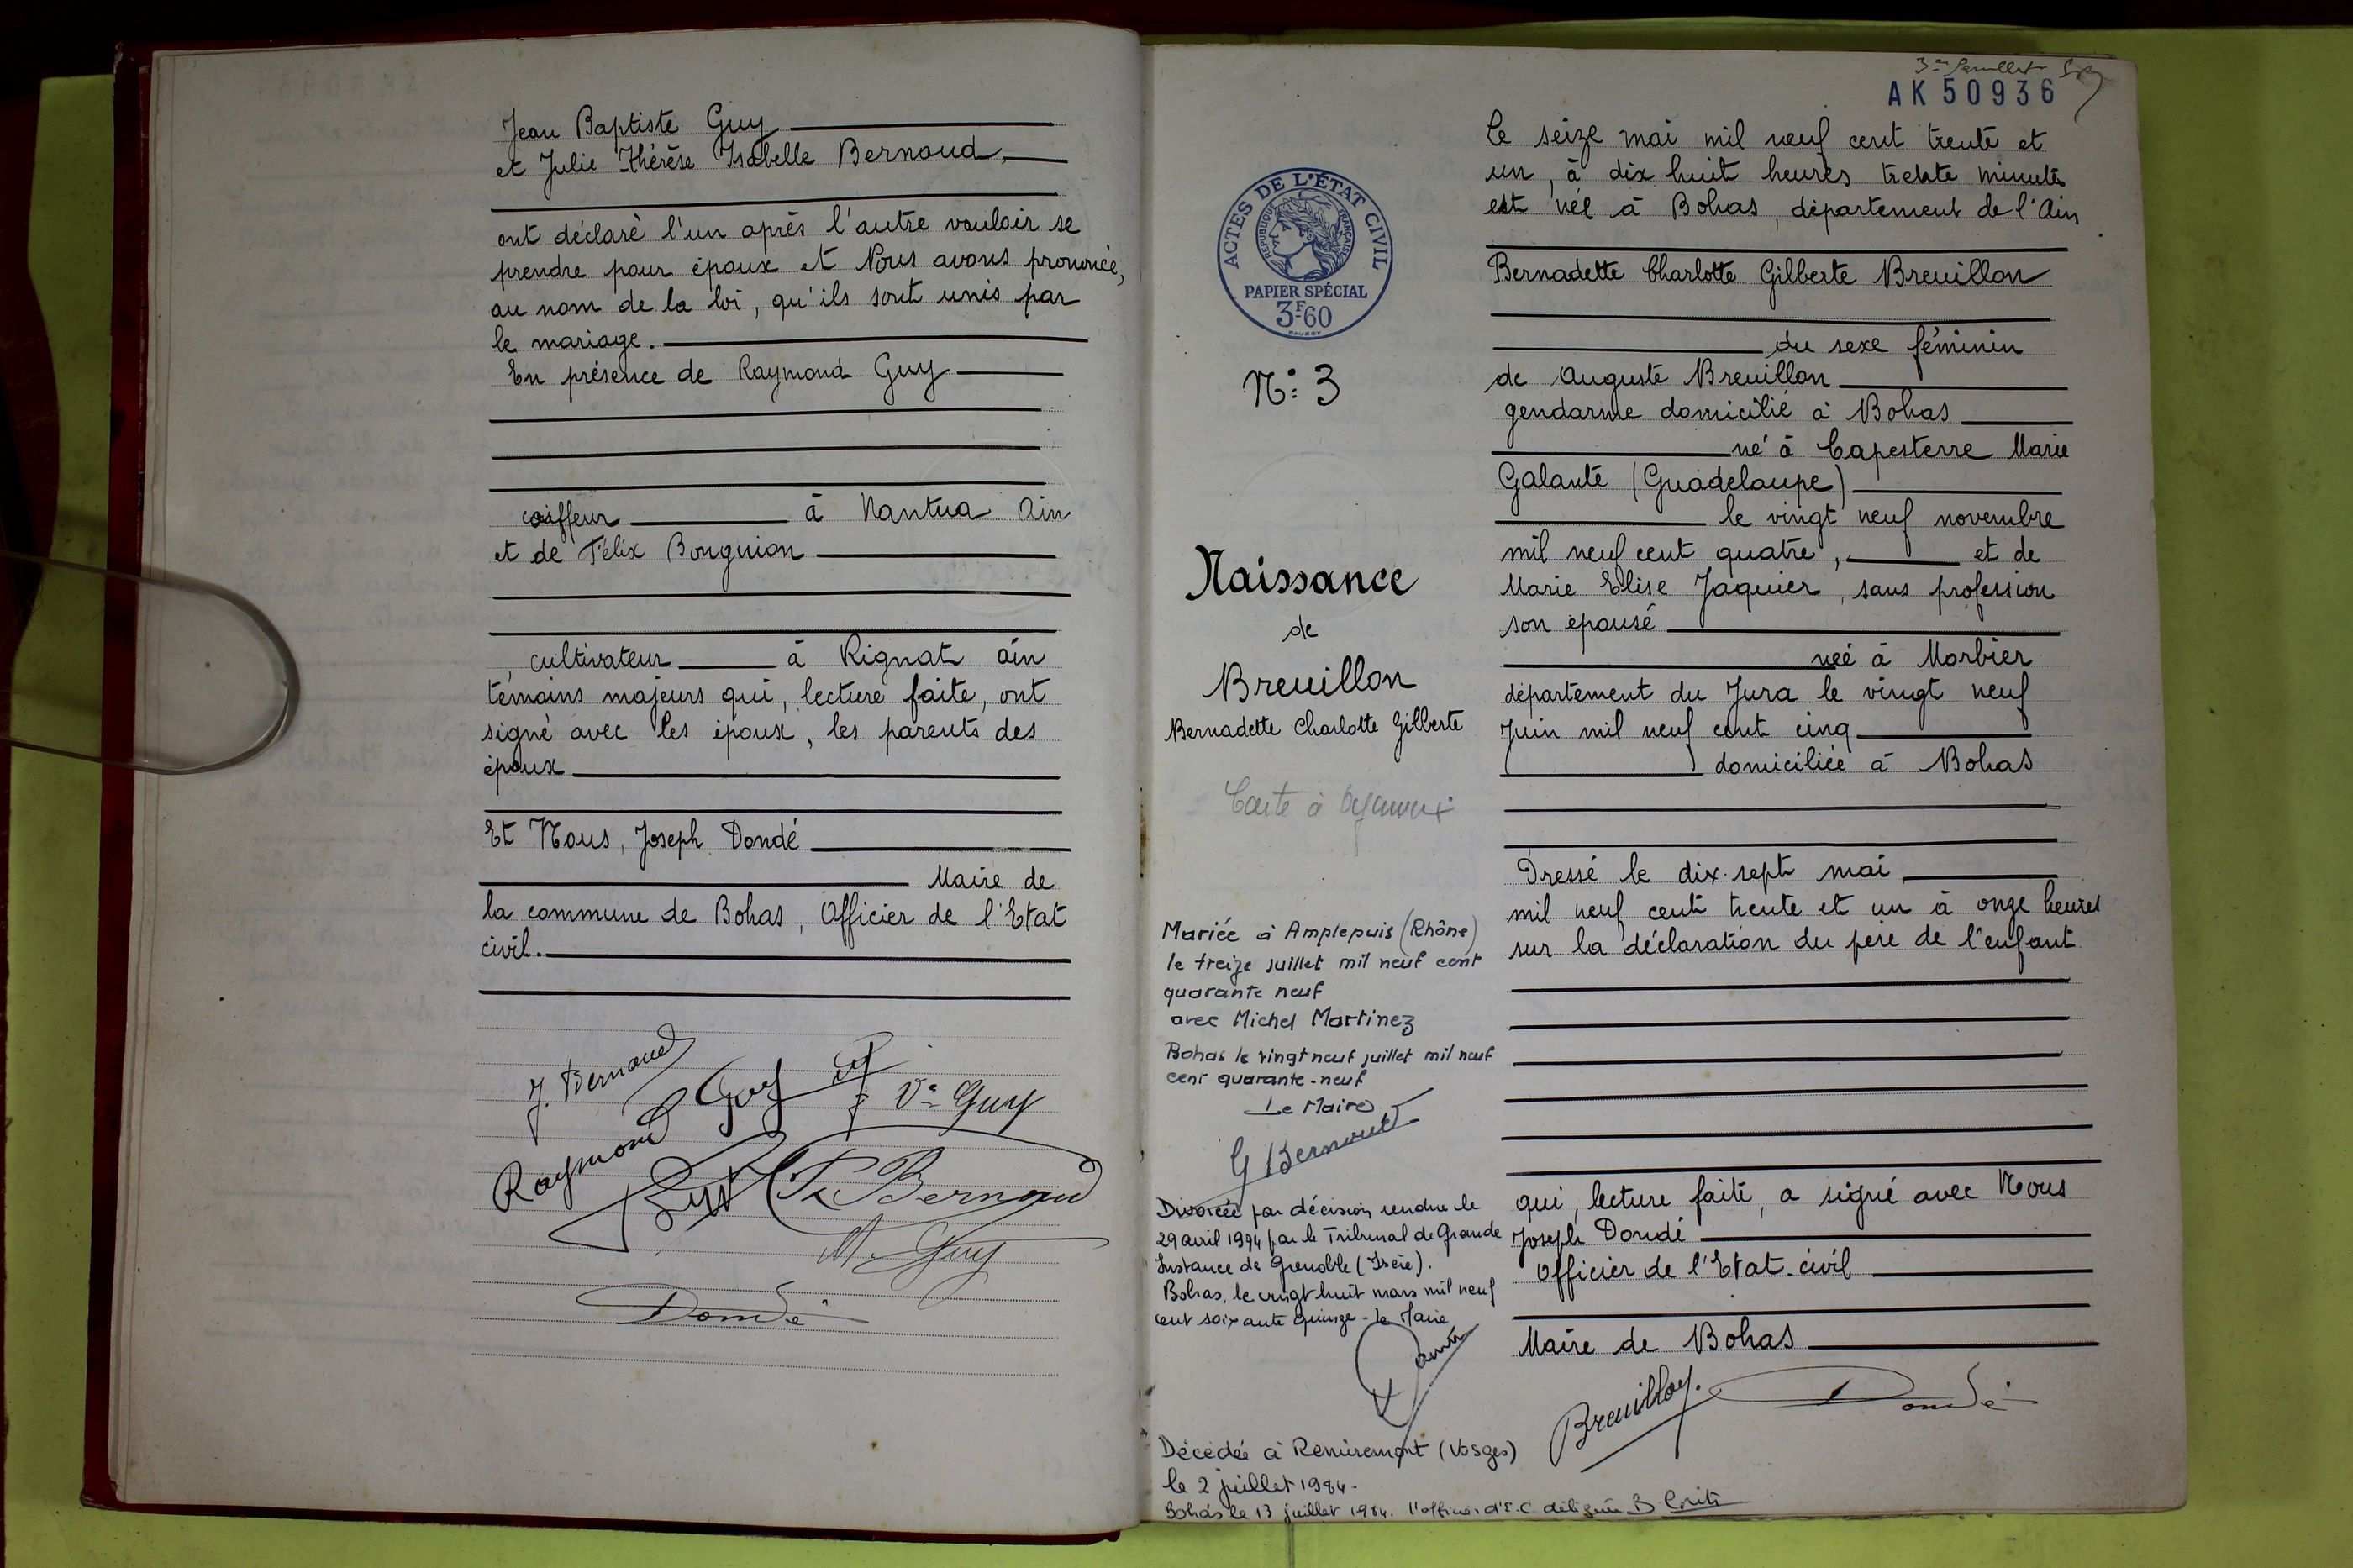 Jean Baptiste Guy
et Julie Thérèse Isabelle Bernoud
ont déclaré l'un après l'autre vouloir se
prendre pour époux et Nous avons prononcé,
au nom de la loi, qu'ils sont unis par
le mariage.
En présence de Raymond Guy
coiffeur à Nantua Ain
et de Félix Bonguion
, cultivateur à Rignat ain
témoins majeurs qui, lecture faite, ont
signé avec les époux, les parents des
époux
Et Nous, Joseph Dondé
Maire de
la commune de Bohas, Officier de l'Etat
civil.
J. Bernoud
Raymond Guy
Vve Guy
Bernoud
M. Guy
Dondé
AK 50936
ACTES DE L'ÉTAT CIVIL
RÉPUBLIQUE FRANÇAISE
PAPIER SPÉCIAL
3F60
N: 3
Naissance
de
Breuillon
Bernadette Charlotte Gilberte
Carte à
Mariée à Amplepuis (Rhône)
le treize juillet mil neuf cent
quarante neuf
avec Michel Martinez
Bohas le vingt neuf juillet mil neuf
cent quarante-neuf
Le Maire
G Bernoud
Divorcée par décision rendue le
29 avril 1974 par le Tribunal de Grande
Instance de Grenoble (Isère).
Bohas, le vingt huit mars mil neuf
cent soixante quinze - le Maire
Décédée à Remiremont (Vosges)
le 2 juillet 1984.
Bohas le 13 juillet 1984. l'officier d'E.C. déléguée B
Le seize mai mil neuf cent trente et
un, à dix huit heures trente minutes
est née à Bohas, département de l'Ain
Bernadette Charlotte Gilberte Breuillon
du sexe féminin
de Auguste Breuillon
gendarme domicilié à Bohas
né à Capesterre Marie
Galante (Guadeloupe)
le vingt neuf novembre
mil neuf cent quatre, et de
Marie Elise Jaquier, sans profession
son épouse
née à Morbier
département du Jura le vingt neuf
Juin mil neuf cent cinq
domiciliée à Bohas
Dressé le dix-sept mai
mil neuf cent trente et un à onze heures
sur la déclaration du père de l'enfant
qui, lecture faite, a signé avec Nous
Joseph Dondé
Officier de l'Etat-civil
Maire de Bohas
Breuillon.
Dondé